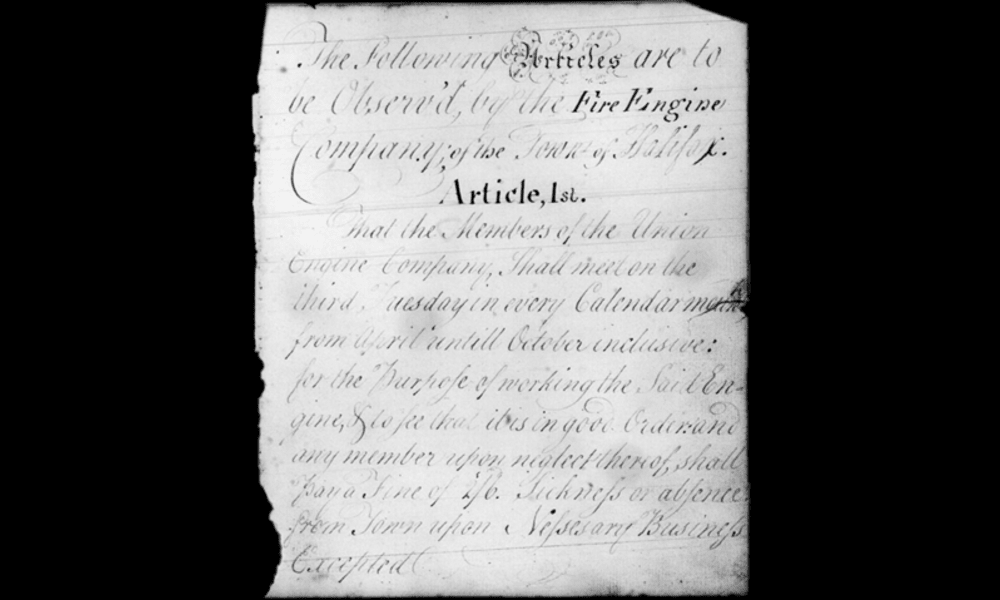 The Following Articles are to
be Observ'd, by the Fire Engine
Company, of the Town of Halifax.
Article, 1st.
That the Members of the Union
Engine Company, Shall meet on the
third Tuesday in every Calendar month
from April untill October inclusive:
for the Purpose of working the Said En-
gine, & to see that it is in good Order: and
any member upon neglect thereof, shall
Pay a Fine of 2/6. Sickness or absence
from Town upon Nessesary Business
Excepted